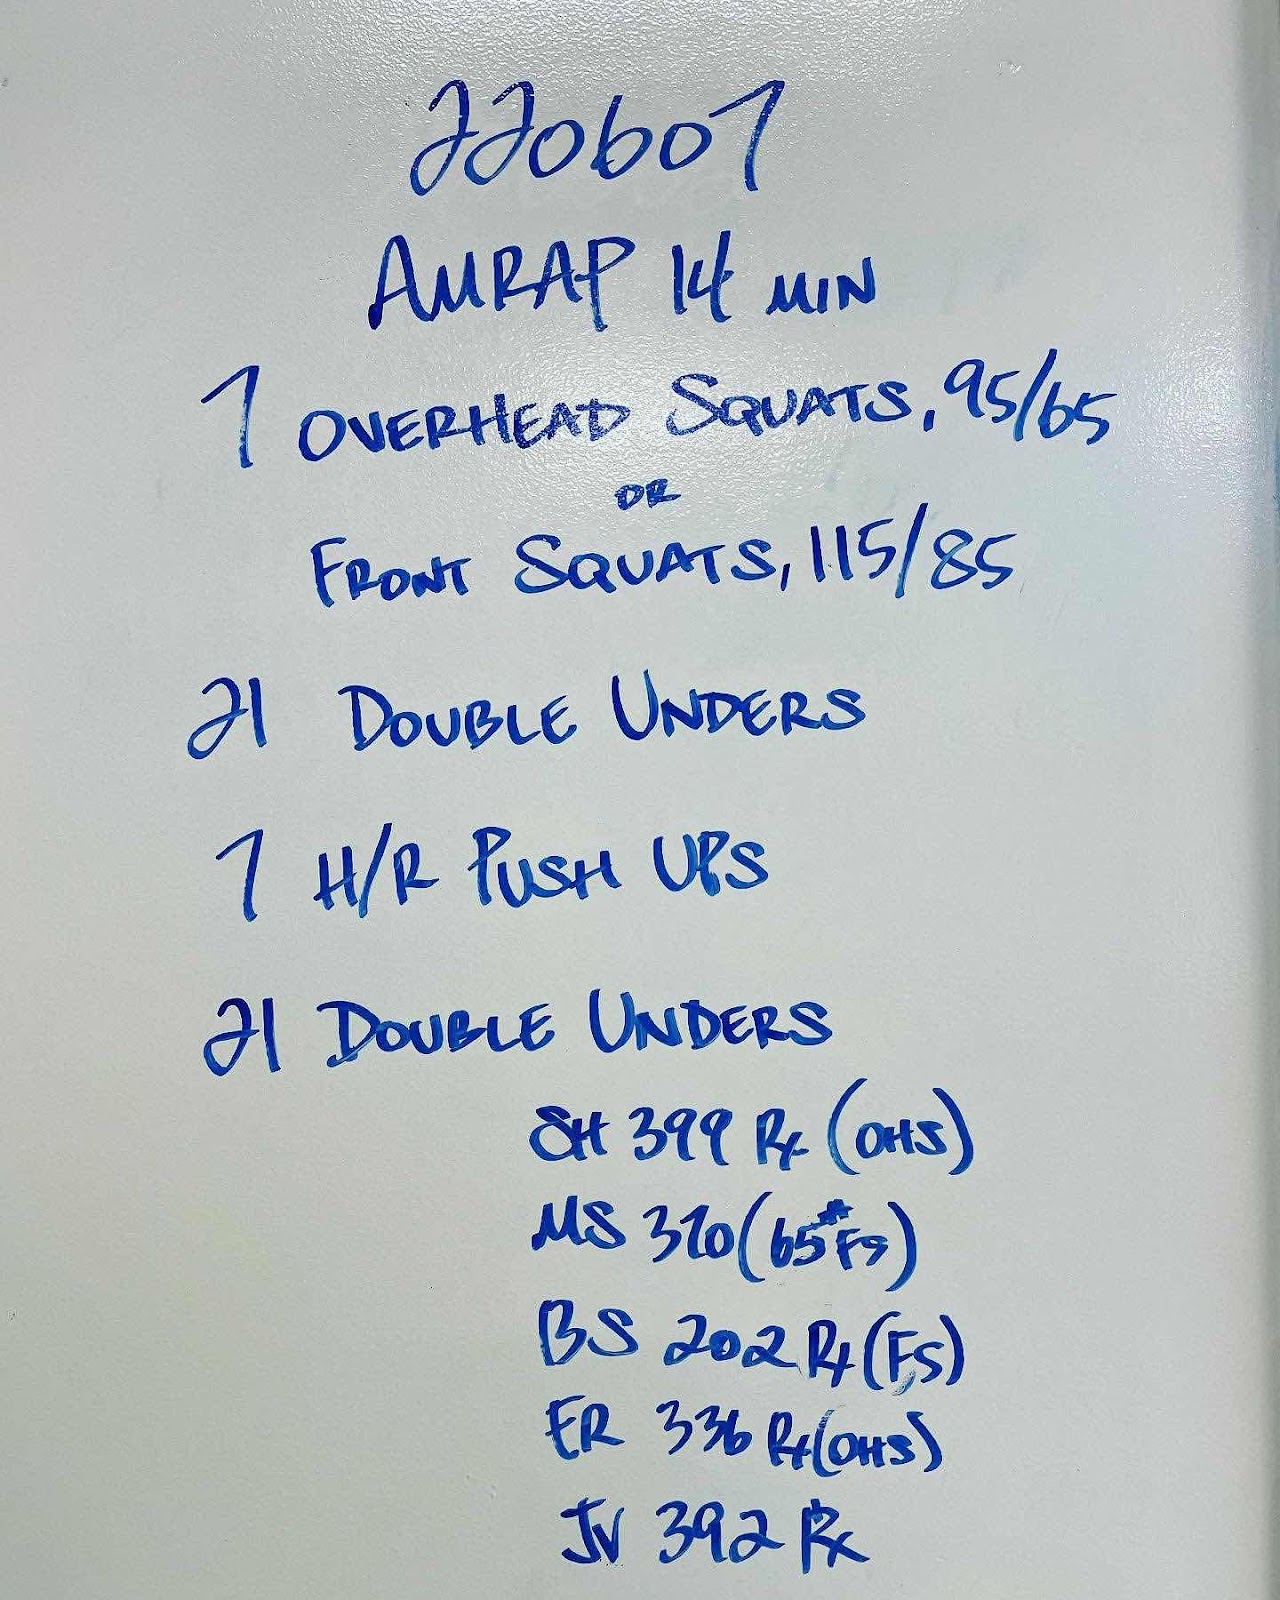 220607
AMRAP 14 MIN
7 OVERHEAD SQUATS, 95/65
OR
FRONT SQUATS, 115/85
21 DOUBLE UNDERS
7 H/R PUSH UPS
21 DOUBLE UNDERS
SH 399 Rx (OHS)
MS 370 (65# FS)
BS 202 Rx (FS)
ER 336 Rx (OHS)
JV 392 Rx